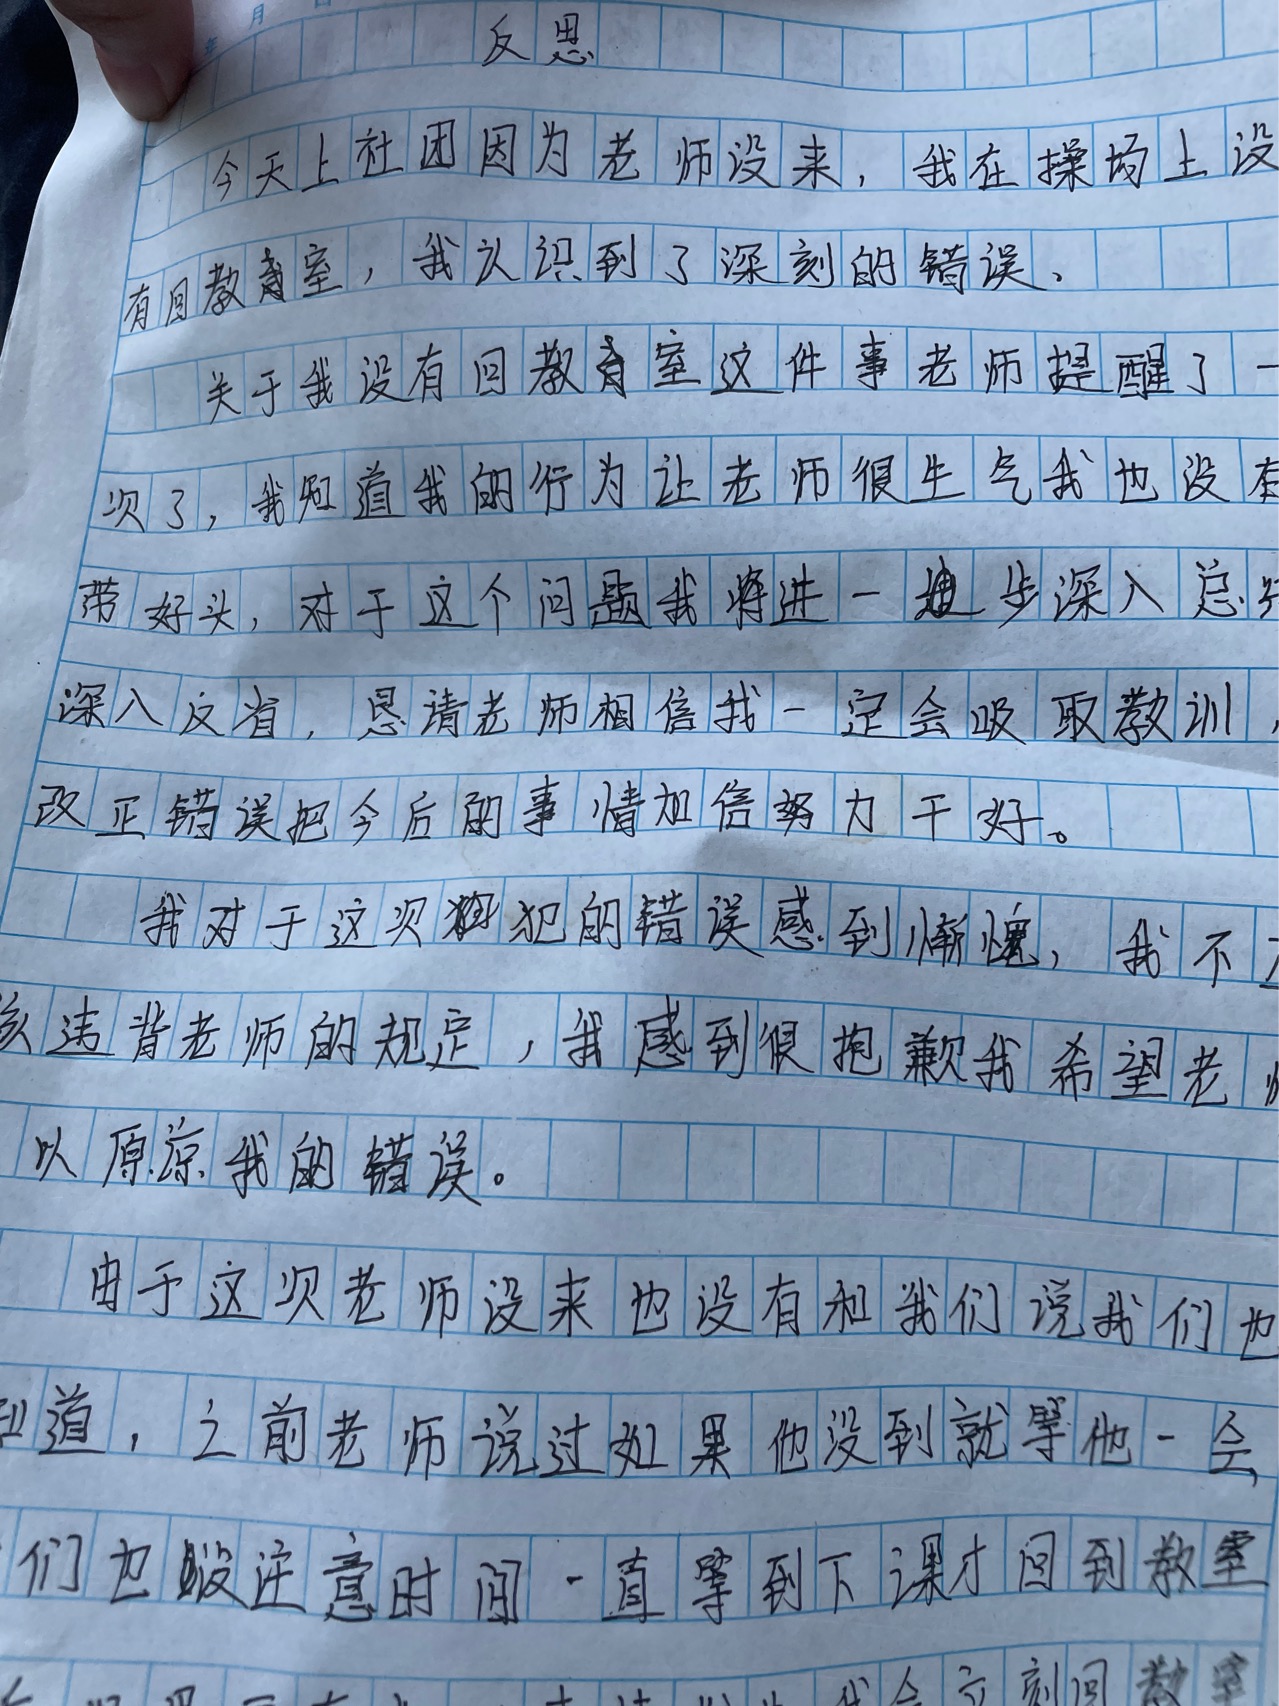 年 月 日
反思
今天上社团因为老师没来，我在操场上没
有回教室，我认识到了深刻的错误、
关于我没有回教室这件事老师提醒了一
次了，我知道我的行为让老师很生气我也没有
带好头，对于这个问题我将进一步深入总
深入反省，恳请老师相信我一定会吸取教训，
改正错误把今后的事情加倍努力干好。
我对于这次犯的错误感到惭愧，我不
该违背老师的规定，我感到很抱歉我希望老
以原谅我的错误。
由于这次老师没来也没有和我们说我们也
知道，之前老师说过如果他没到就等他一会
们也没注意时间一直等到下课才回到教室
我会立刻回教室